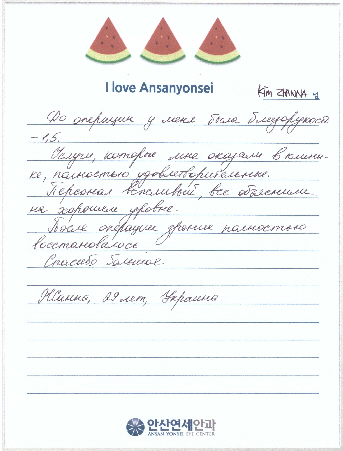 I love Ansanyonsei
Kim ZHANNA
До операции у меня была близорукость
-1,5.
Услуги, которые мне оказали в клини-
ке, полностью удовлетворительные.
Персонал вежливый, все объяснили
на хорошем уровне.
После операции зрение полностью
восстановилось.
Спасибо большое.
Жанна, 29 лет, Украина
안산연세안과
ANSAN YONSEI EYE CENTER